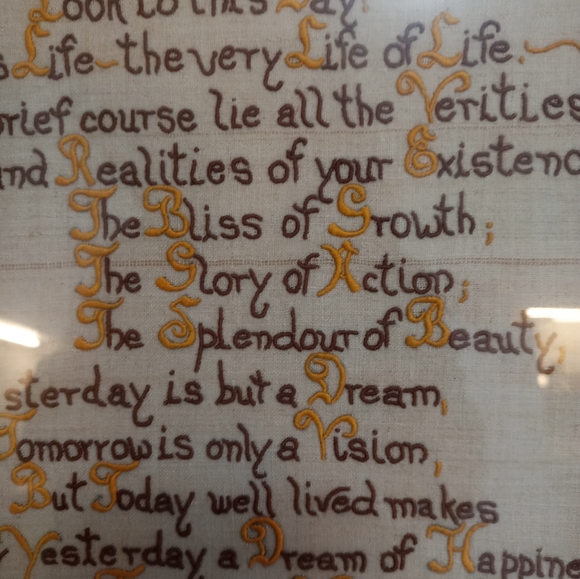 Look to this Day!
Life - the very Life of Life.
brief course lie all the Verities
and Realities of your Existenc
The Bliss of Growth;
The Glory of Action;
The Splendour of Beauty,
sterday is but a Dream,
Tomorrow is only a Vision,
But Today well lived makes
Yesterday a Dream of Happine